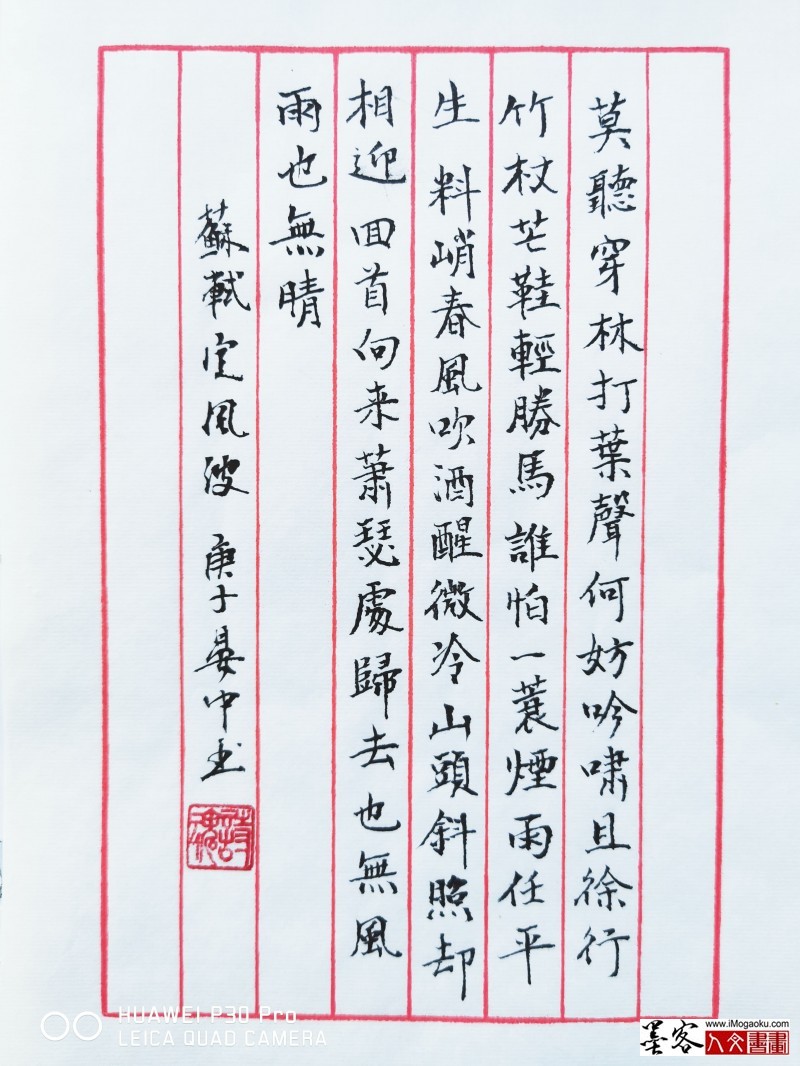 莫聽穿林打葉聲何妨吟嘯且徐行
竹杖芒鞋輕勝馬誰怕一蓑煙雨任平
生料峭春風吹酒醒微冷山頭斜照却
相迎回首向来蕭瑟處歸去也無風
雨也無晴
蘇軾定風波 庚子晏中玉
HUAWEI P30 Pro
LEICA QUAD CAMERA
墨客
www.iMogaoku.com
人文書畫